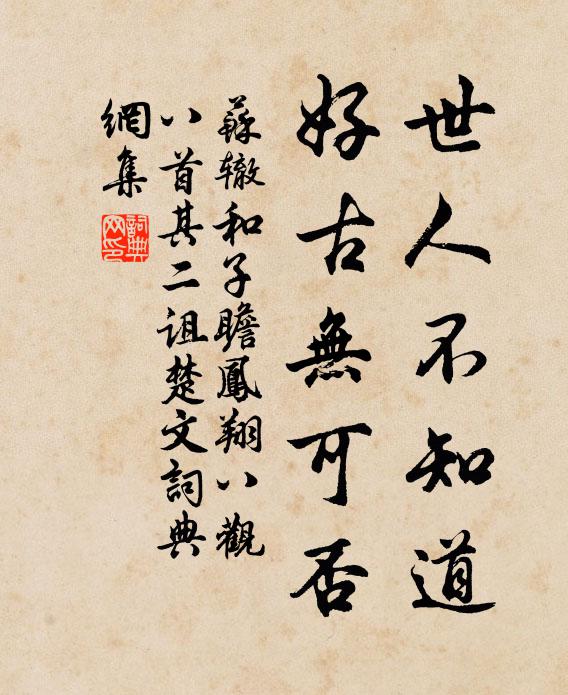 世人不知道
好古無可否
蘇辙和子瞻鳳翔八觀
八首其二诅楚文詞典
網集
詞典
网印